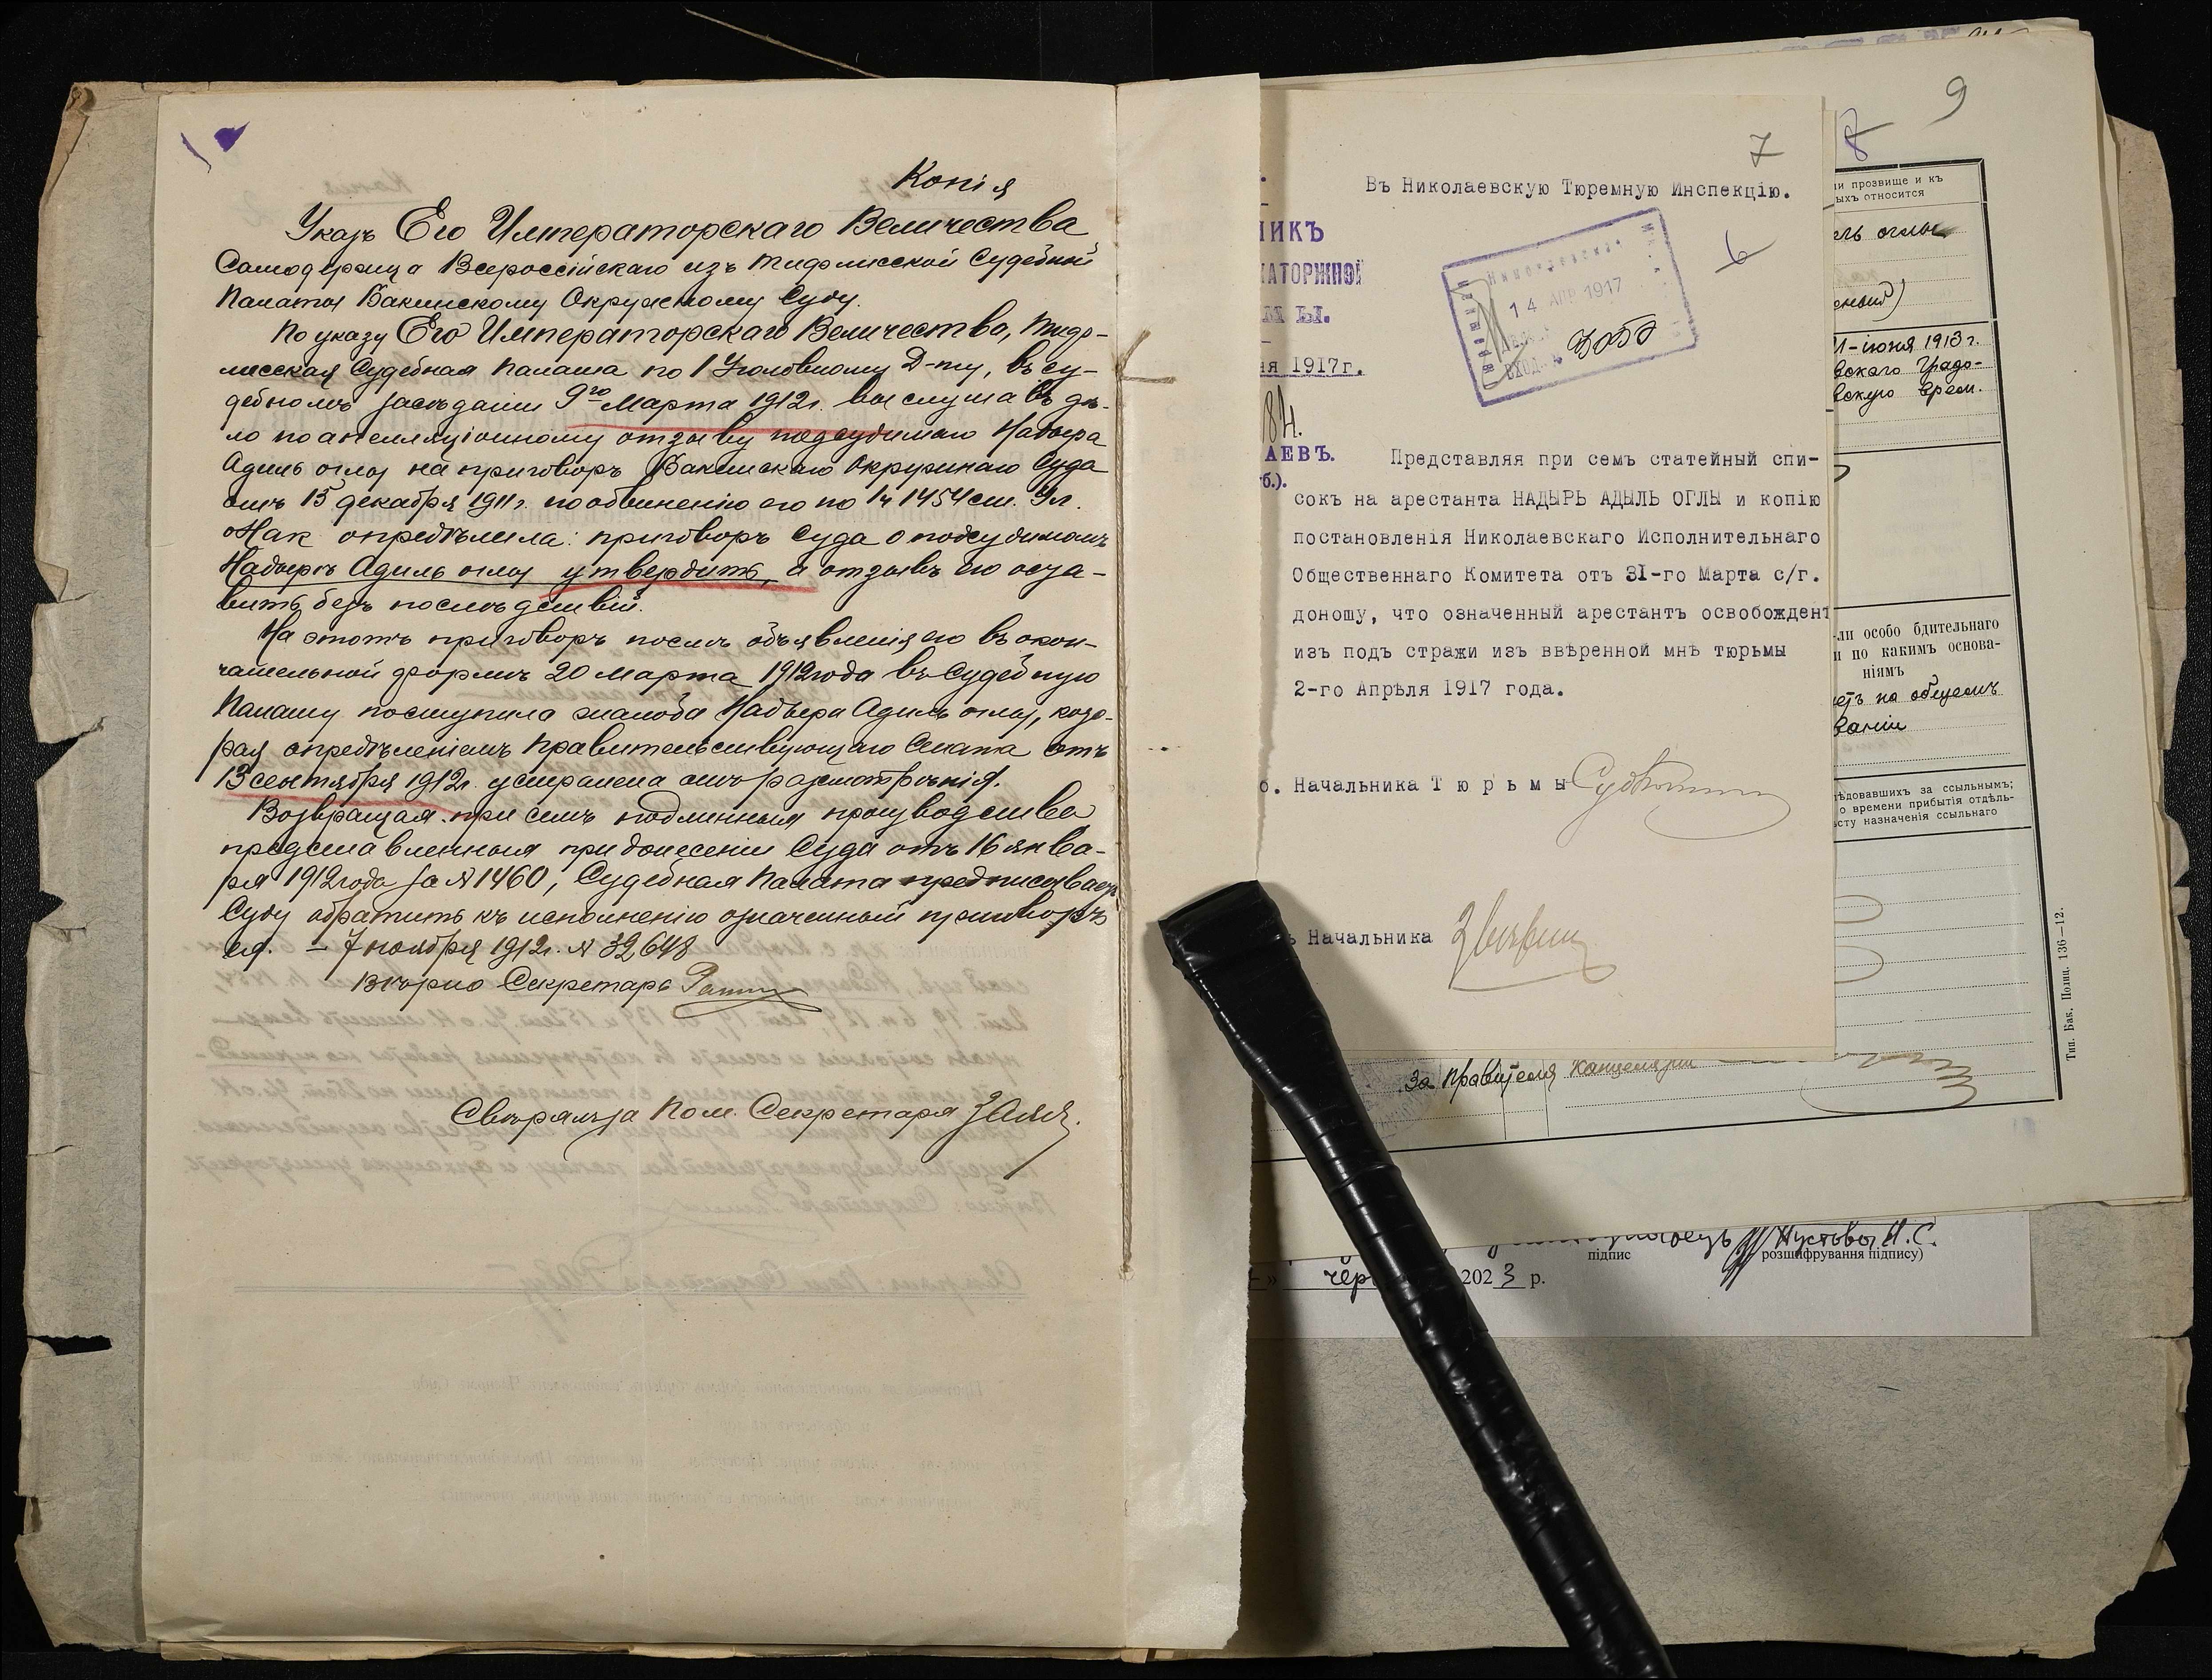 Копія
Указъ Его Императорскаго Величества
Самодержца Всероссійскаго изъ Тифлисской Судебной
Палаты Бакинскому Окружному Суду.
По указу Его Императорскаго Величества, Тиф-
лисская Судебная Палата по 1 Уголовному Д-ту, въ су-
дебномъ засѣданіи 9го Марта 1912г. выслушавъ дѣ-
ло по апелляціонному отзыву подсудимаго Надыра
Адиль оглы на приговоръ Бакинскаго Окружнаго Суда
отъ 15 декабря 1911г. по обвиненію его по 1ч 1454 ст. Ул.
о Нак опредѣлила: приговоръ Суда о подсудимомъ
Надырѣ Адиль оглы утвердить, а отзывъ его оста-
вить безъ послѣдствій.
На этотъ приговоръ послѣ объявленія его въ окон-
чательной формѣ 20 Марта 1912 года въ Судебную
Палату поступила жалоба Надыра Адиль оглы, кото-
рая опредѣленіемъ Правительствующаго Сената отъ
13 сентября 1912г. устранена отъ разсмотрѣнія.
Возвращая при семъ подлинныя производства
представленныя при донесеніи Суда отъ 16 янва-
ря 1912 года за № 1460, Судебная Палата предписываетъ
Суду обратить къ исполненію означенный приговоръ
ея. – 7 ноября 1912г. № 32648
Вѣрно Секретарь
Свѣрялъ за Пом. Секретаря
7
Въ Николаевскую Тюремную Инспекцію.
6
НИКЪ
КАТОРЖНОЙ
14 АПР 1917
ВХОД. №
1917г.
84.
АЕВЪ.
б.).
Представляя при семъ статейный спи-
сокъ на арестанта НАДЫРЬ АДЫЛЬ ОГЛЫ и копію
постановленія Николаевскаго Исполнительнаго
Общественнаго Комитета отъ 31-го Марта с/г.
доношу, что означенный арестантъ освобожденъ
изъ подъ стражи изъ ввѣренной мнѣ тюрьмы
2-го Апрѣля 1917 года.
о. Начальника Тюрьмы
Начальника
9
8
ли прозвище и къ
ыхъ относится
оглы
1-іюня 1913 г.
Градо-
врем.
ли особо бдительнаго
и по какимъ основа-
ніямъ
на общемъ
ваніи
ѣдовавшихъ за ссыльнымъ;
о времени прибытія отдѣль-
сту назначенія ссыльнаго
Тип. Бак. Полиц. 136—12.
За Правителя Канцеляріи
Н.С.
підпис
розшифрування підпису)
2023 р.